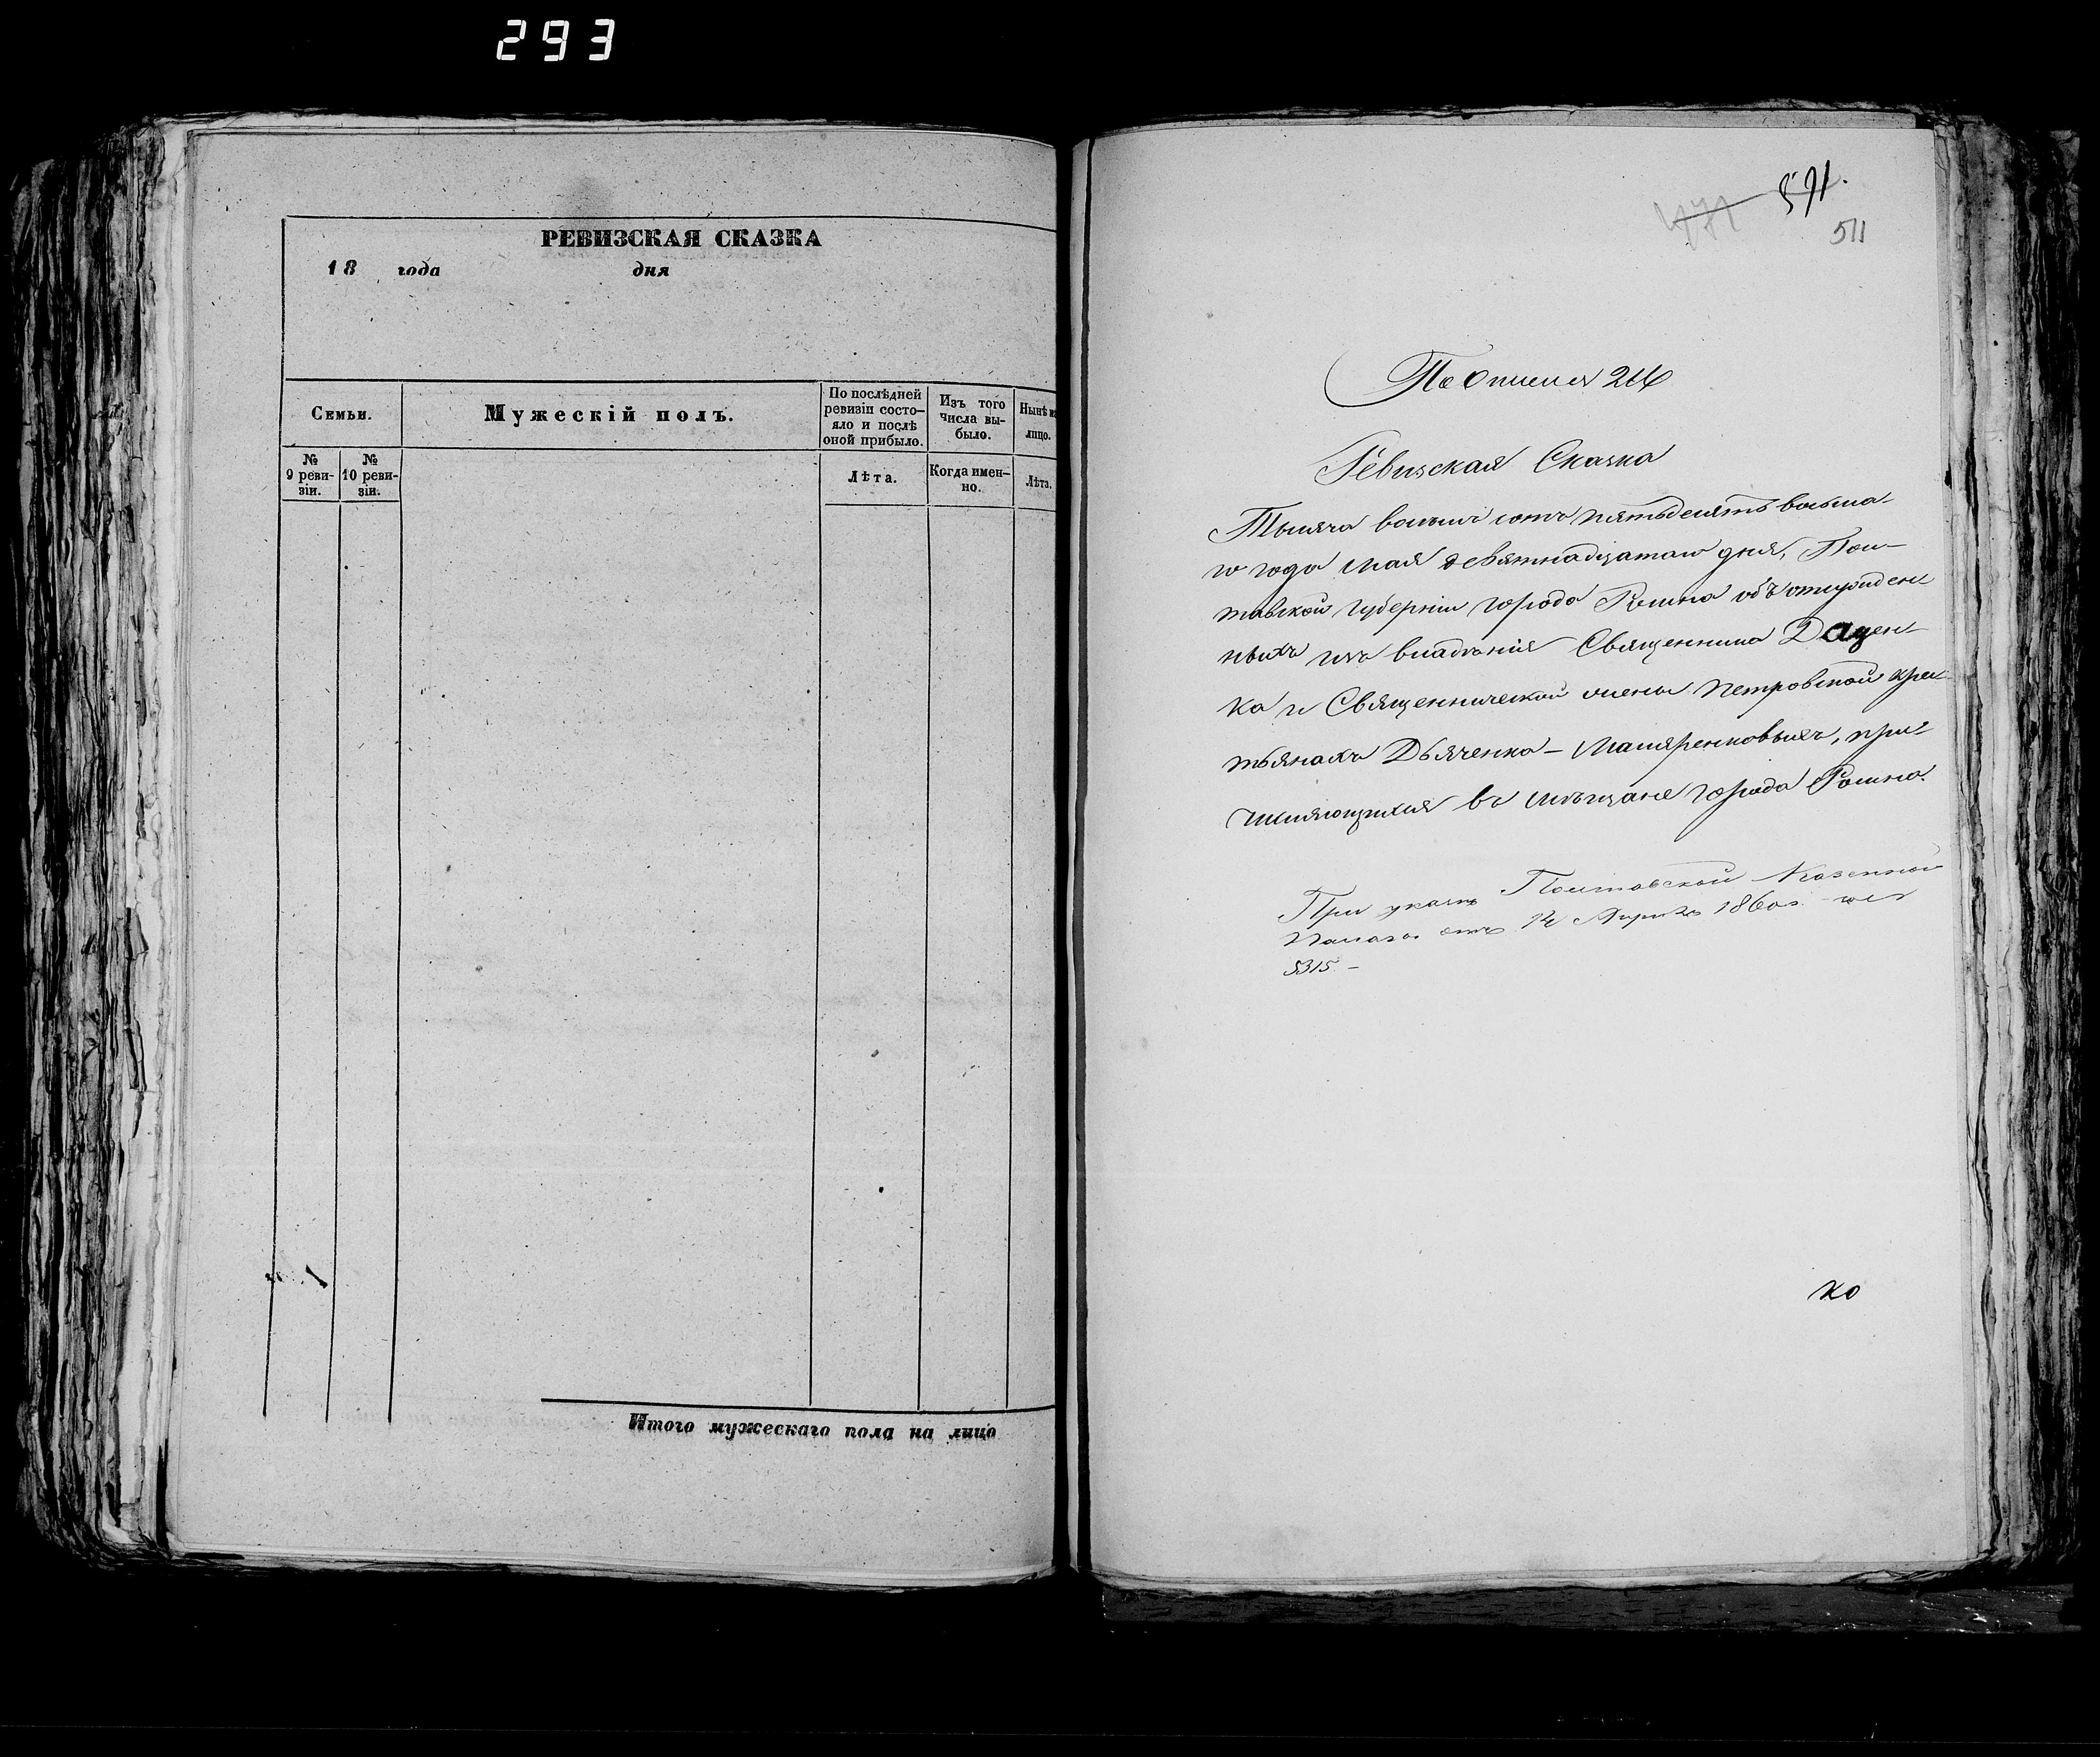 293
РЕВИЗСКАЯ СКАЗКА
18 года дня
Семьи.
Мужескій полъ.
По послѣдней ревизіи состо-
яло и послѣ оной прибыло.
Изъ того числа вы-
было.
Нынѣ на лицо.
№ 9 реви-
зіи.
№ 10 реви-
зіи.
Лѣта.
Когда имен-
но.
Лѣта.
Итого мужескаго пола на лицо
471 591.
511
По описи
Ревизская Сказка
Тысяча восемь сотъ пятьдесятъ восьма-
го года мая девятнадцатаго дня, Пол-
тавской губерніи города Ромна объ отсужден
ныхъ изъ владѣнія Священника Дацен-
ка и Священнической жены Петровской крес
тьянахъ Дьяченко-Маляренковыхъ, при-
числяющихся въ мѣщане города Ромна.
При указѣ Полтавской Казенной
Палаты отъ 12 Апрѣля 1860 г. за №
5315. –